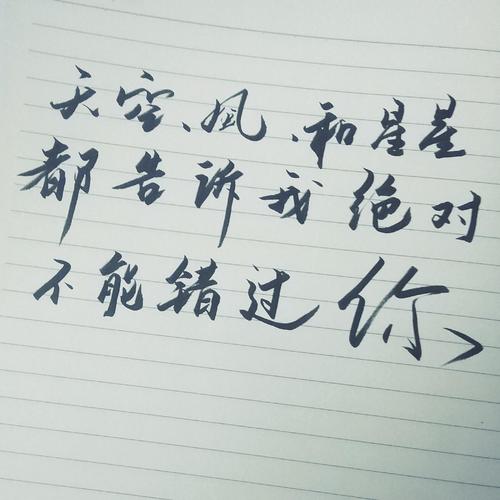 天空、风、和星星
都告诉我绝对
不能错过你